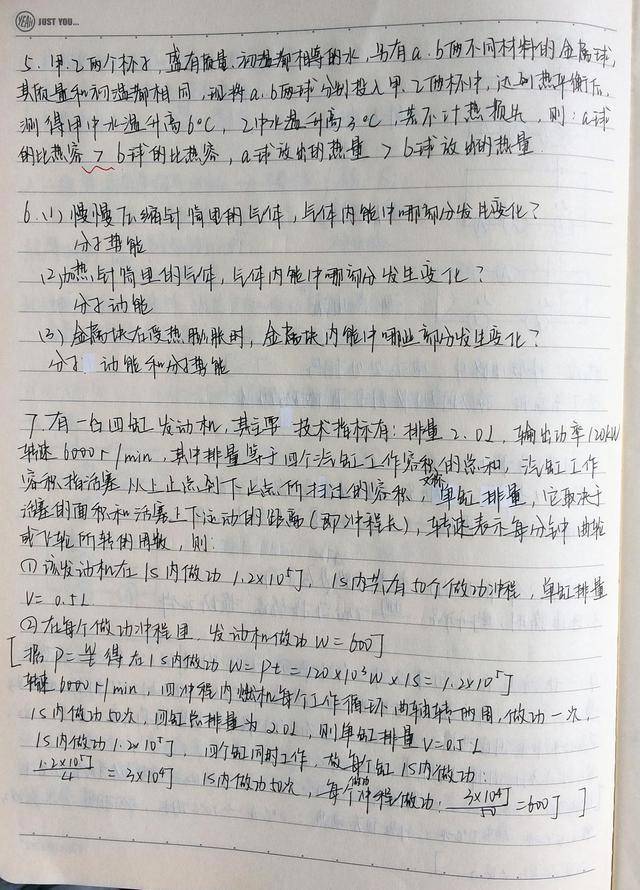 YEAH JUST YOU...
5. 甲.乙两个杯子, 盛有质量、初温都相等的水, 另有a.b两不同材料的金属球,
其质量和初温都相同, 现将a.b两球分别投入甲.乙两杯中, 达到热平衡后,
测得甲中水温升高6°C, 乙中水温升高3°C, 若不计热损失, 则: a球
的比热容 > b球的比热容, a球放出的热量 > b球放出的热量.
6. (1) 慢慢压缩针筒里的气体, 气体内能中哪部分发生变化?
分子势能
(2) 加热针筒里的气体, 气体内能中哪部分发生变化?
分子动能
(3) 金属块在受热膨胀时, 金属块内能中哪些部分发生变化?
分子动能和分子势能
7. 有一台四缸发动机, 其主要技术指标有: 排量2.0L, 输出功率120kW
转速6000r/min, 其中排量等于四个汽缸工作容积的总和, 汽缸工作
容积指活塞从上止点到下止点所扫过的容积, 又称单缸排量, 它取决于
活塞的面积和活塞上下运动的距离(即冲程长), 转速表示每分钟曲轴
或飞轮所转的周数, 则:
① 该发动机在1s内做功1.2×10⁵J, 1s内共有50个做功冲程, 单缸排量
V= 0.5L
② 在每个做功冲程里, 发动机做功W=600J
[据P=W/t得在1s内做功W=Pt=120×10³W×1s=1.2×10⁵J
转速6000r/min, 四冲程内燃机每个工作循环曲轴转两周, 做功一次,
1s内做功50次, 四缸总排量为2.0L, 则单缸排量V=0.5L
1s内做功1.2×10⁵J, 四个缸同时工作, 故每个缸1s内做功:
1.2×10⁵J/4 = 3×10⁴J 1s内做功50次, 每个做功冲程做功: 3×10⁴J/50 =600J ]